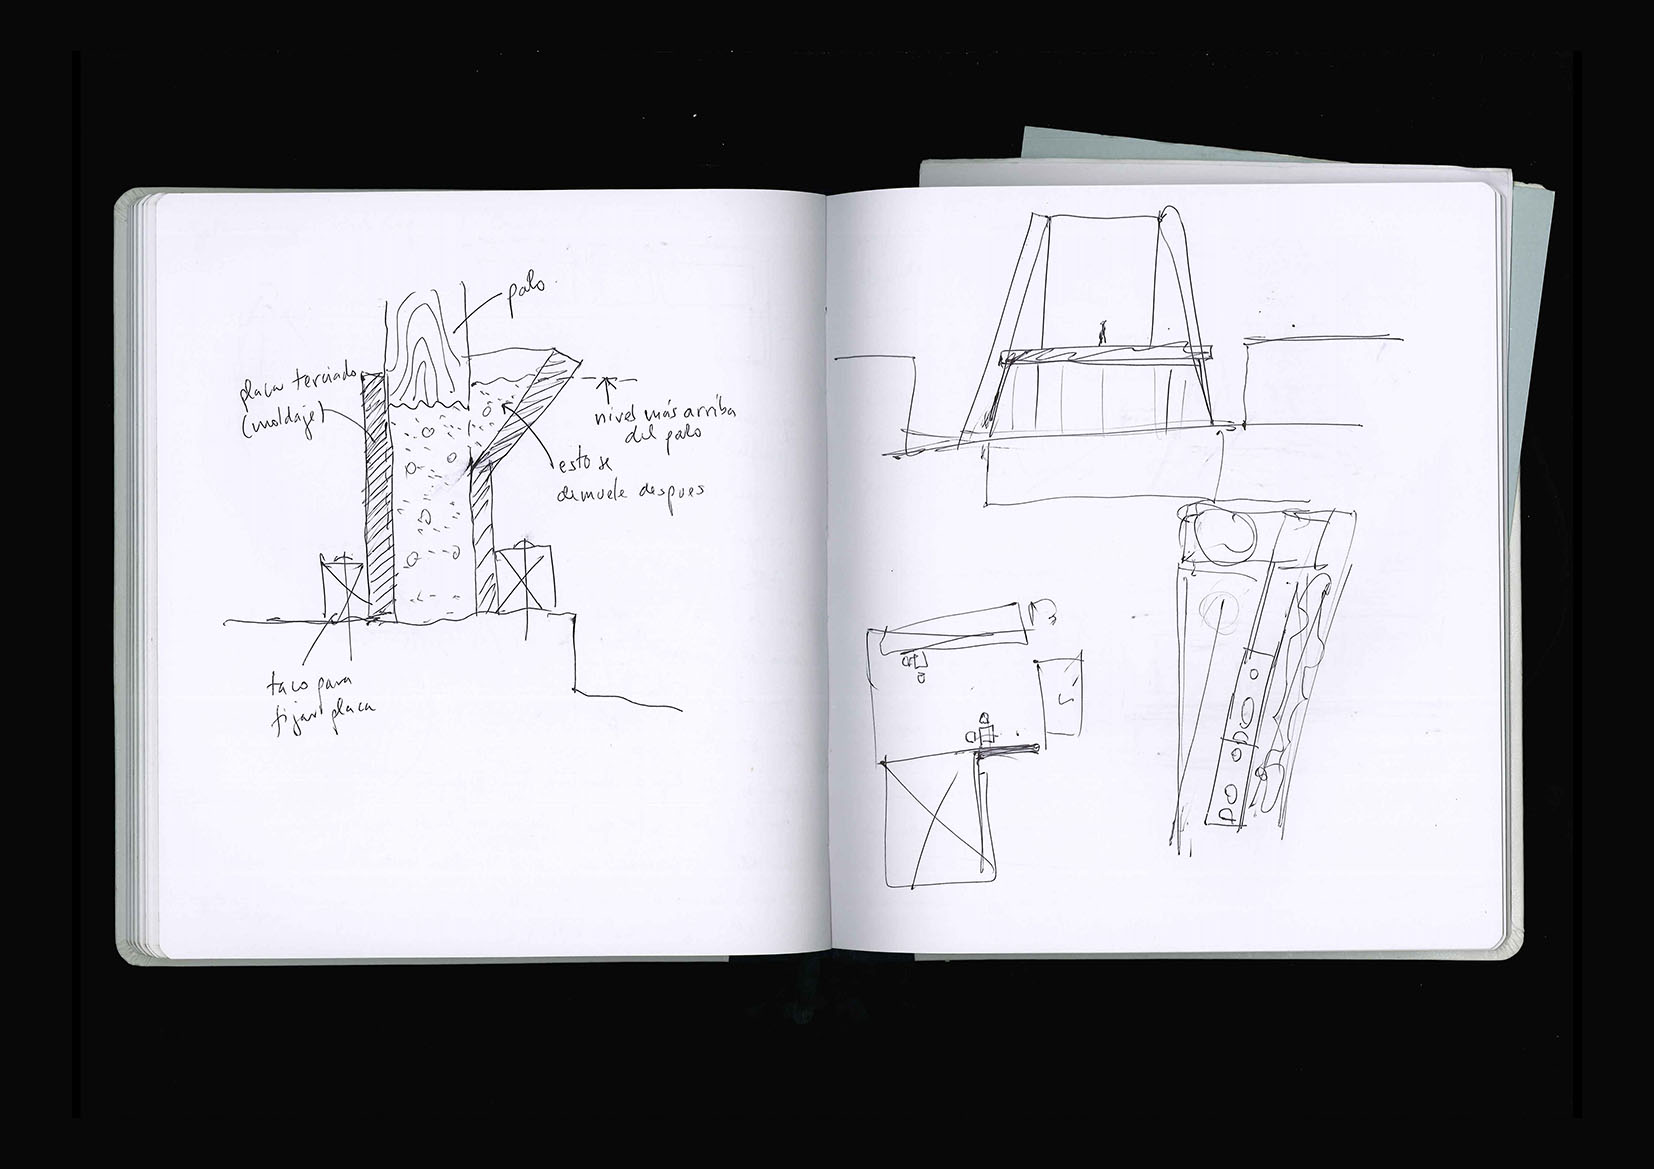 palo
placa terciado
(moldaje)
nivel más arriba
del palo
esto se
demuele despues
taco para
fijar placa